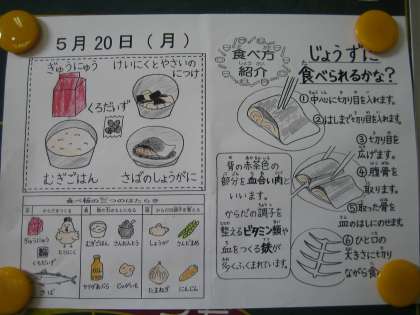 5月20日(月)
ぎゅうにゅう
けいにくとやさいの
につけ
くろだいず
むぎごはん
さばのしょうがに
食べ物の三つのはたらき
ぎゅうにゅう
とりにく
くろだいず
さば
むぎごはん
さんおんとう
じゃがいも
しょうが
さんどまめ
たまねぎ
にんじん
食べ方
紹介
しょうかい
じょうずに
食べられるかな?
①中心に切り目を入れます。
②はしまで切り目を入れます。
③切り目を
広げます。
④腹骨を
取ります。
⑤取った骨を
魚のはしにのせます。
⑥ひと口の
大きさに切り
ながら食
背の赤茶色の
部分を血合い肉と
いいます。
からだの調子を
整えるビタミン類や
血をつくる鉄が
多くふくまれています。